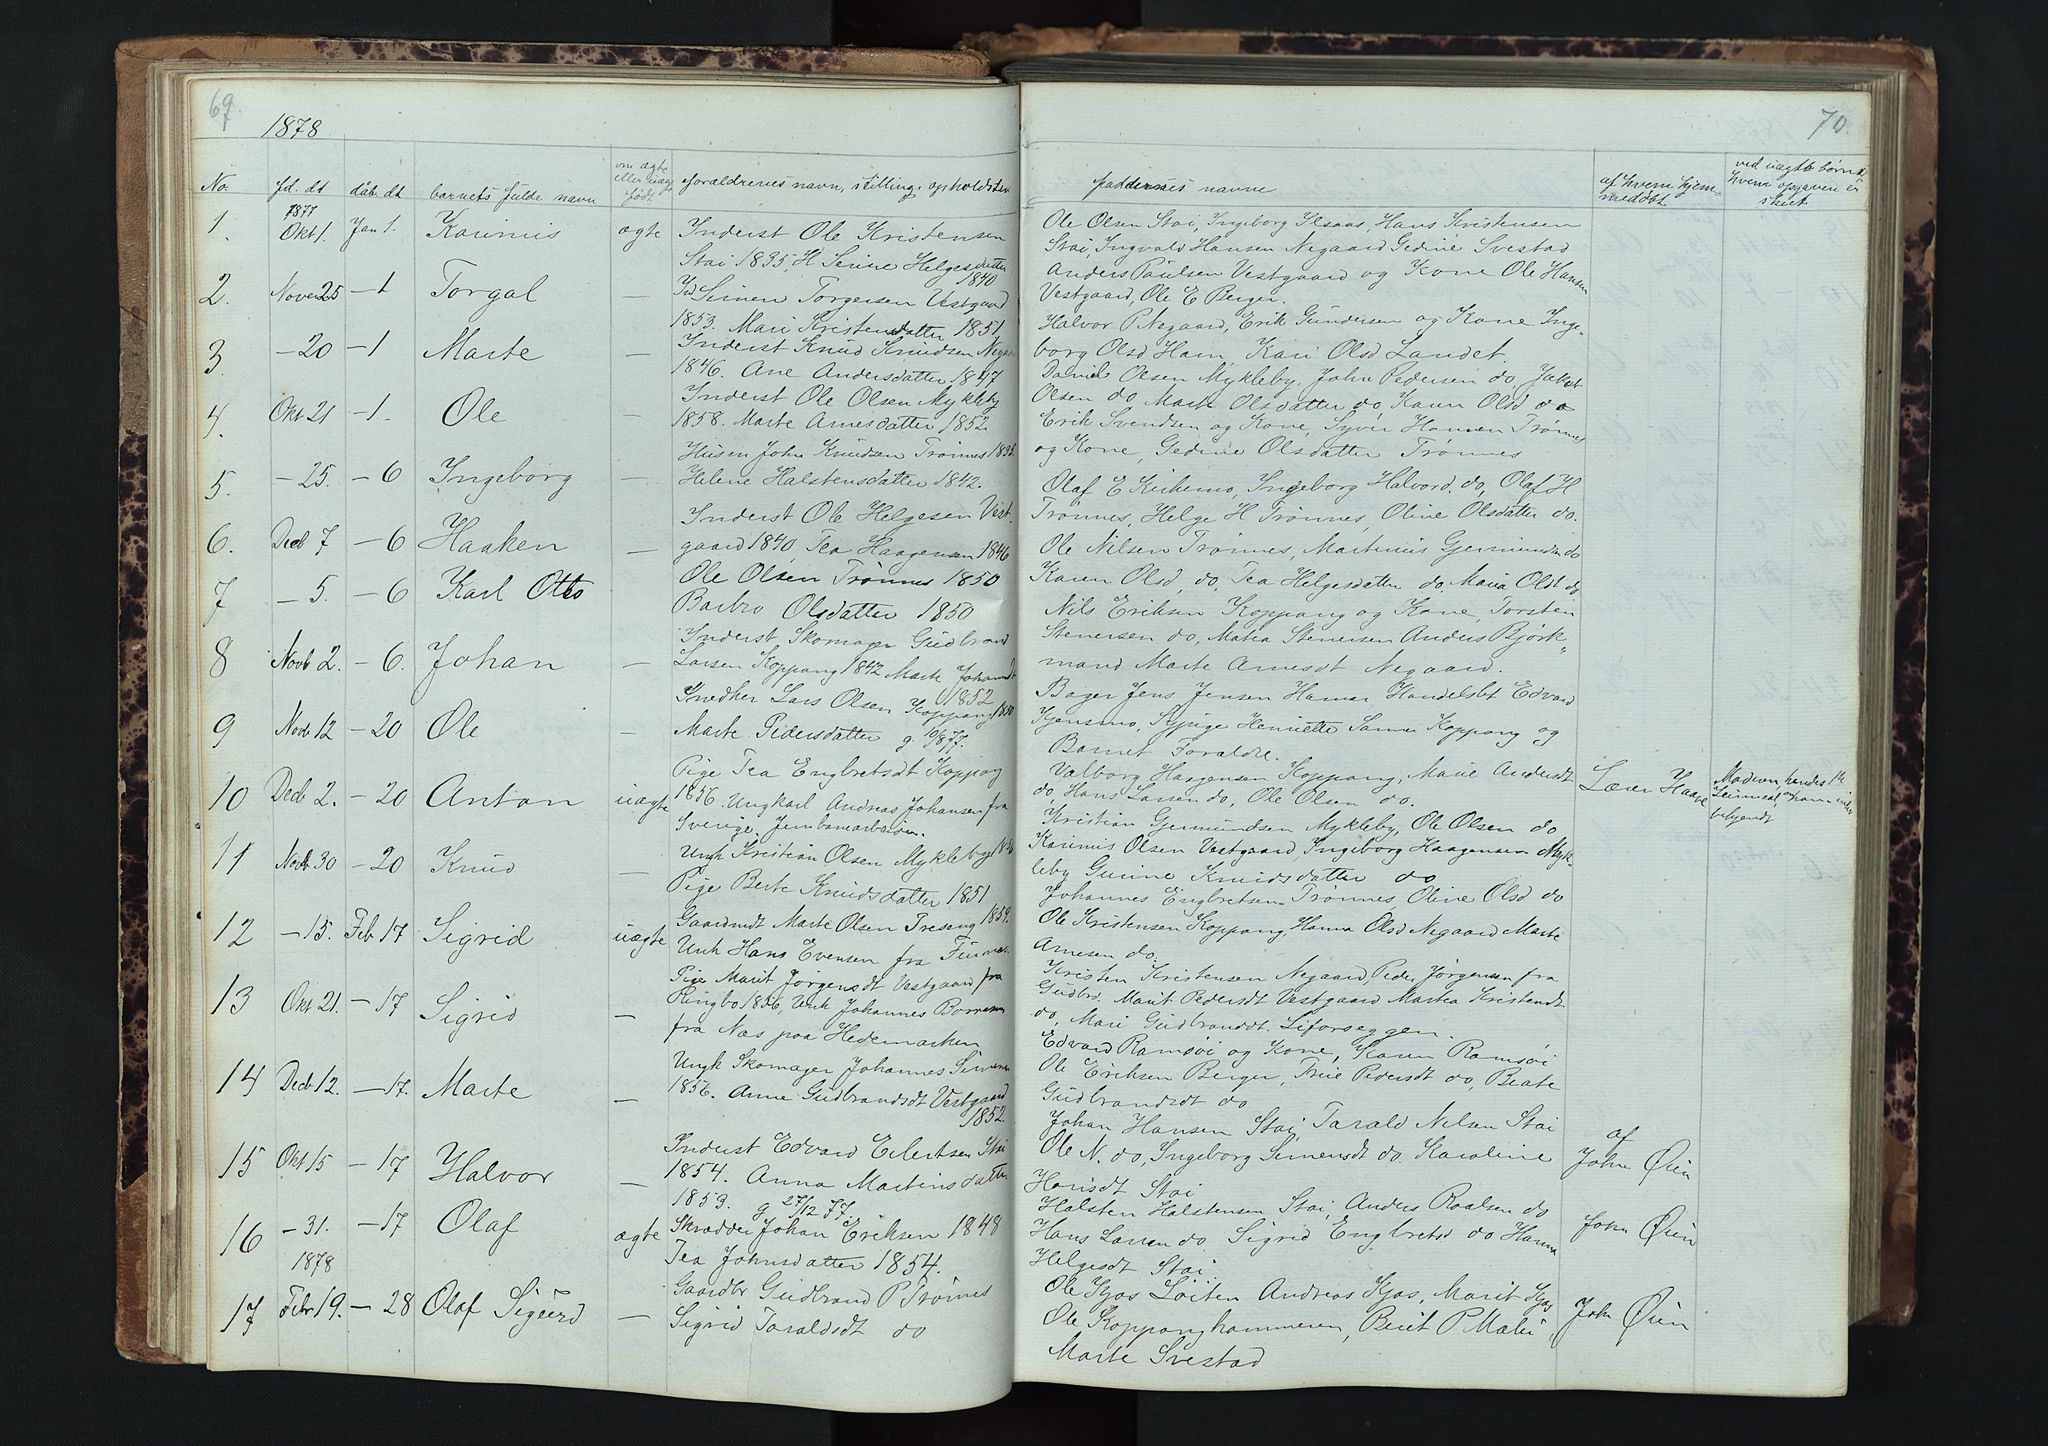 69.
1878
No. fd. dt dåb. dt barnets fulde navn om ægte eller uægte født forældrenes navn, stilling, opholdsted
1. 1877 Okt 1. Jan 1. Karinus ægte Inderst Ole Kristensen
Stai 1835, H Senne Helgesdatter 1840
2. Novbr 25 – 1 Torgal — Id Simen Torgersen Vestgaard
1853. Mari Kristensdatter 1851
3. – 20 – 1 Marte — Inderst Knud Knudsen Negaard
1846. Ane Andersdatter 1847
4. Okt 21 – 1. Ole — Inderst Ole Olsen Mykleby
1858. Marte Arnesdatter 1852.
5. – 25. – 6 Ingeborg — Husm John Knudsen Trønnes 1835
Helene Halstensdatter 1842.
6. Decb 7 – 6 Haaken — Inderst Ole Helgesen Vest-
gaard 1840 Tea Haagensen 1846
7 – 5. – 6 Karl Otto Ole Olsen Trønnes 1850
Barbro Olsdatter 1850
8 Novb 2. – 6. Johan — Inderst Skomager Gudbrand
Larsen Koppang 1842 Marte Johannsdt 1852
9 Novb 12 – 20 Ole — Snedker Lars Olsen Koppang 1850
Marte Pedersdatter g 10/8 77.
10 Decb 2. – 20 Anton uægte Pige Tea Engbretsdt Koppang
1856. Ungkarl Andreas Johansen fra
Sverige. Jernbanearbeider.
11 Novb 30 – 20 Knud — Ungk Kristian Olsen Mykleby
Pige Berte Knudsdatter 1851
12 – 15. Feb 17 Sigrid uægte Gaardmdt Marte Olsen Treseng 1859.
Unk Hans Evensen fra
13 Okt 21. – 17 Sigrid — Pige Marit Jørgensdt Vestgaard fra
Ringbo 1856, Unk Johannes
fra Næs paa Hedemarken
14 Decb 12. – 17. Marte — Ungk Skomager Johannes Simensen
1856. Anne Gudbrandsdt Vestgaard
1852.
15 Okt 15 – 17 Halvor — Inderst Edvard Eilertsen Stai
1854. Anna Martinsdatter
1853. g 27/12 77.
16 – 31. – 17 Olaf ægte Skrædder Johan Eriksen 1848
Tea Johnsdatter 1854.
1878
17 Febr 19. – 28 Olaf Sigurd — Gaardbr Gudbrand P Trønnes
Sigrid Taraldsdt do
70.
faddernes navne af hvem hjemmedøbt ved uægte børn, hvem opgaven er skeet
Ole Olsen Stai, Ingeborg Ilsaas, Hans Kristensen
Stai, Ingvald Hansen Negaard Gedine Svestad
Anders Paulsen Vestgaard og Kone Ole Hansen
Vestgaard, Ole E Berger.
Halvor P Negaard, Erik Gundersen og Kone Inge-
borg Olsd Ham, Kari Olsd Landet.
Daniels Olsen Mykleby, John Pedersen do, Jakob
Olsen do Marte Olsdatter do Karen Olsd do
Erik Svendsen og Kone, Syver Hansen Trønnes
og Kone, Gedine Olsdatter Trønnes
Olaf E Kirkemo, Ingeborg Halvord. do, Olaf H
Trønnes, Helge H Trønnes, Oline Olsdatter do.
Ole Nilsen Trønnes, Martinus Gjermundsn do
Karen Olsd, do, Tea Helgesdatter do, Maria Olsdt do
Nils Eriksen Koppang og Kone, Torsten
Stenersen do, Matea Stenersen Anders Bjørk-
mand Marte Arnesdt Negaard.
Bager Jens Jensen Hamar Handelsbt Edvard
Kjensmo, Sypige Henriette Koppang og
Barnet Foraldre.
Valborg Haagensen Koppang, Marie Andersdt
do, Hans Larsen do, Ole Olsen do. Lærer Haave
Kristian Gjermundsen Mykleby, Ole Olsen do
Karinus Olsen Vestgaard, Ingeborg Haagensen Myk-
leby Gunne Knudsdatter do
Johannes Engbretsen Trønnes, Oline Olsd do
Ole Kristensen Koppang, Hanna Olsd Negaard Marte
Arnesen do.
Kristen Kristensen Negaard, Peder Jørgensen fra
Gudbrd. Marit Pedersdt Vestgaard Martea Kristensdt
do, Mari Gudbrandsdt. Liforseggen.
Edvard Ramsøi og Kone, Karen Ramsøi
Ole Eriksen Berger, Trine Pedersdt do, Beate
Gudbrandsdt do
Johan Hansen Stai, Tarald Nilsen Stai
Ole N. do, Ingeborg Simensdt do. Karoline af John Øien
Hansdt Stai
Halsten Halstensen Stai, Anders Roalsen do
Hans Larsen do Sigrid Engbretsd do Hanna John Øien
Helgesdt Stai.
Ole Kjos Løiten Andreas Kjos, Marit Kjos
Ole Koppanghammeren, Berit P John Øien
Marte Svestad